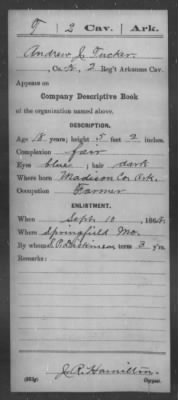 T | 2 Cav. | Ark.
Andrew J. Tucker
, Co. , 2 Reg't Arkansas Cav.
Appears on
Company Descriptive Book
of the organization named above.
DESCRIPTION.
Age 18 years; height 5 feet 2 inches.
Complexion fair
Eyes blue ; hair dark
Where born Madison Co. Ark.
Occupation Farmer
ENLISTMENT.
When Sept. 10 , 186 .
Where Springfield Mo.
By whom S.P. Dickinson, term 3 y'rs.
Remarks:
J. R. Hamilton
(383g) Copyist.